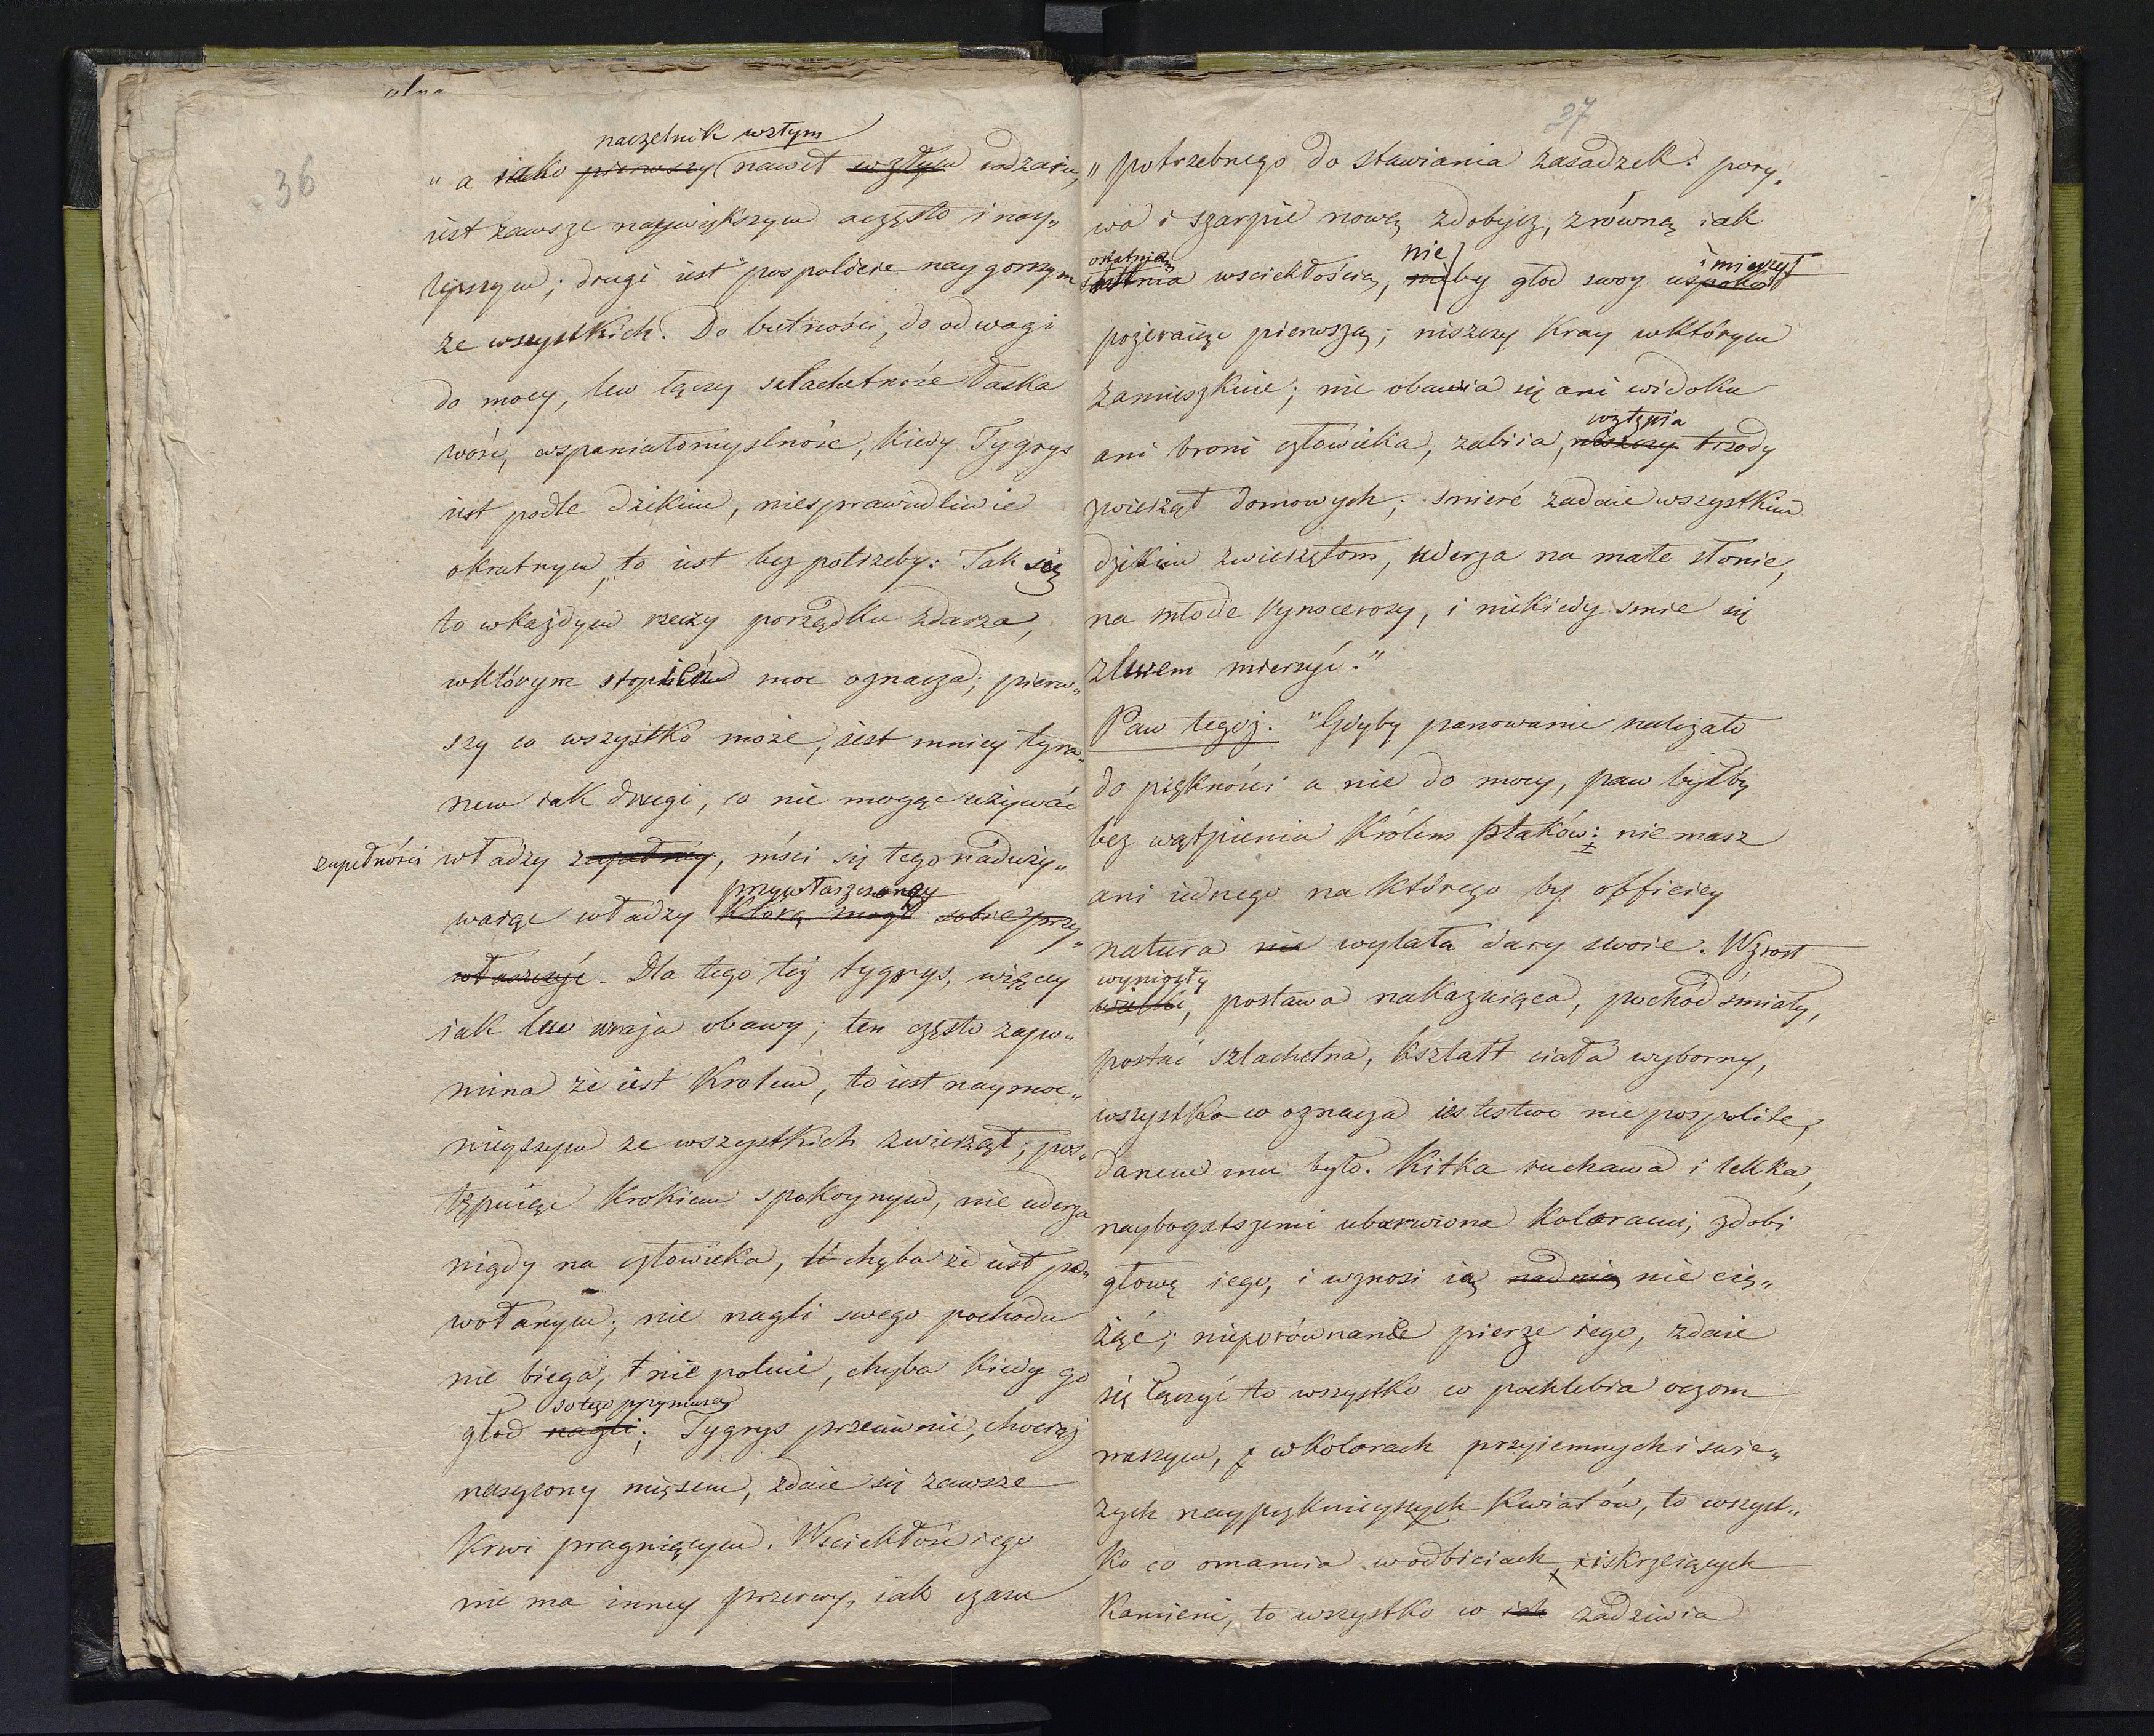 olna
36
naczelnik wsztym
„ a iako pierwszy nawet w złym rodzaiu,
iest zawsze naywiększym a często i nay„
lepszym; drugi iest pospolicie naygorszym
ze wszystkich. Do butności, do odwagi
do mocy, lew łączy szlachetność łaska
wość, wspaniałomyslność, kiedy Tygrys
iest podle dzikim, niesprawiedliwie
okrutnym, to iest bez potrzeby: Tak się
to w każdym rzeczy porządku zdarza,
w którym stopień moc oznacza; pierw„
szy co wszystko może, iest mniey tyra„
nem iak drugi, co nie mogąc używać
zupełności władzy zupełney, mści się tego naduży„
przywłaszczoney
waiąc władzy którą mógł sobie przy„
właszczyć. Dla tego też tygrys, więcey
iak lew wraża obawy; ten często zapo„
mina że iest Krolem, to iest naymoc„
nieyszym ze wszystkich zwierząt; pos„
tępuiąc krokiem spokoynym, nie uderza
nigdy na człowieka, chyba że iest po„
wołanym; nie nagli swego pochodu
nie biega, nie poluie, chyba kiedy go
do tego przymusza
głod nagli; Tygrys przeciwnie, chociaż
nasycony mięsem, zdaie się zawsze
krwi pragnącym. Wsciekłość iego
nie ma inney przerwy, iak czasu
37
„ potrzebnego do stawiania zasadzek: pory„
wa i szarpie nową zdobycz, z równą iak
ostatnią nie imierzył
wsciekłością, by głod swoy uspokoił
pożeraiąc pierwszą; niszczy kray w którym
zamieszkuie; nie obawia się ani widoku
wytępia
ani broni człowieka, zabiia, niszczy trzody
zwierząt domowych; smierć zadaie wszystkim
dzikim zwierzętom, uderza na małe słonie,
na młode rynocerosy, i niekiedy smie się
z lwem mierzyć."
Paw tegoż. "Gdyby panowanie należało
do piękności a nie do mocy, paw byłby
bez wątpienia Królem ptaków: nie masz
ani iednego na którego by officiey
natura nie wylała dary swoie. Wzrost
wyniosły
wielki, postawa nakazuiąca, pochód śmiały,
postać szlachetna, kształt ciała wyborny,
wszystko co oznacza iestestwo niepospolite,
danem mu było. Kitka ruchawa i lekka,
naybogatszemi ubarwiona kolorami, zdobi
głowę iego, i wznosi ią nad nią nie cię„
żąc; nieporównane pierze iego, zdaie
się łączyć to wszystko co pochlebia oczom
naszym, w kolorach przyiemnych i swie„
żych naypięknieyszych kwiatów, to wszyst„
ko co omamia w odbiciach, iskrzących
kamieni, to wszystko co ich zadziwia